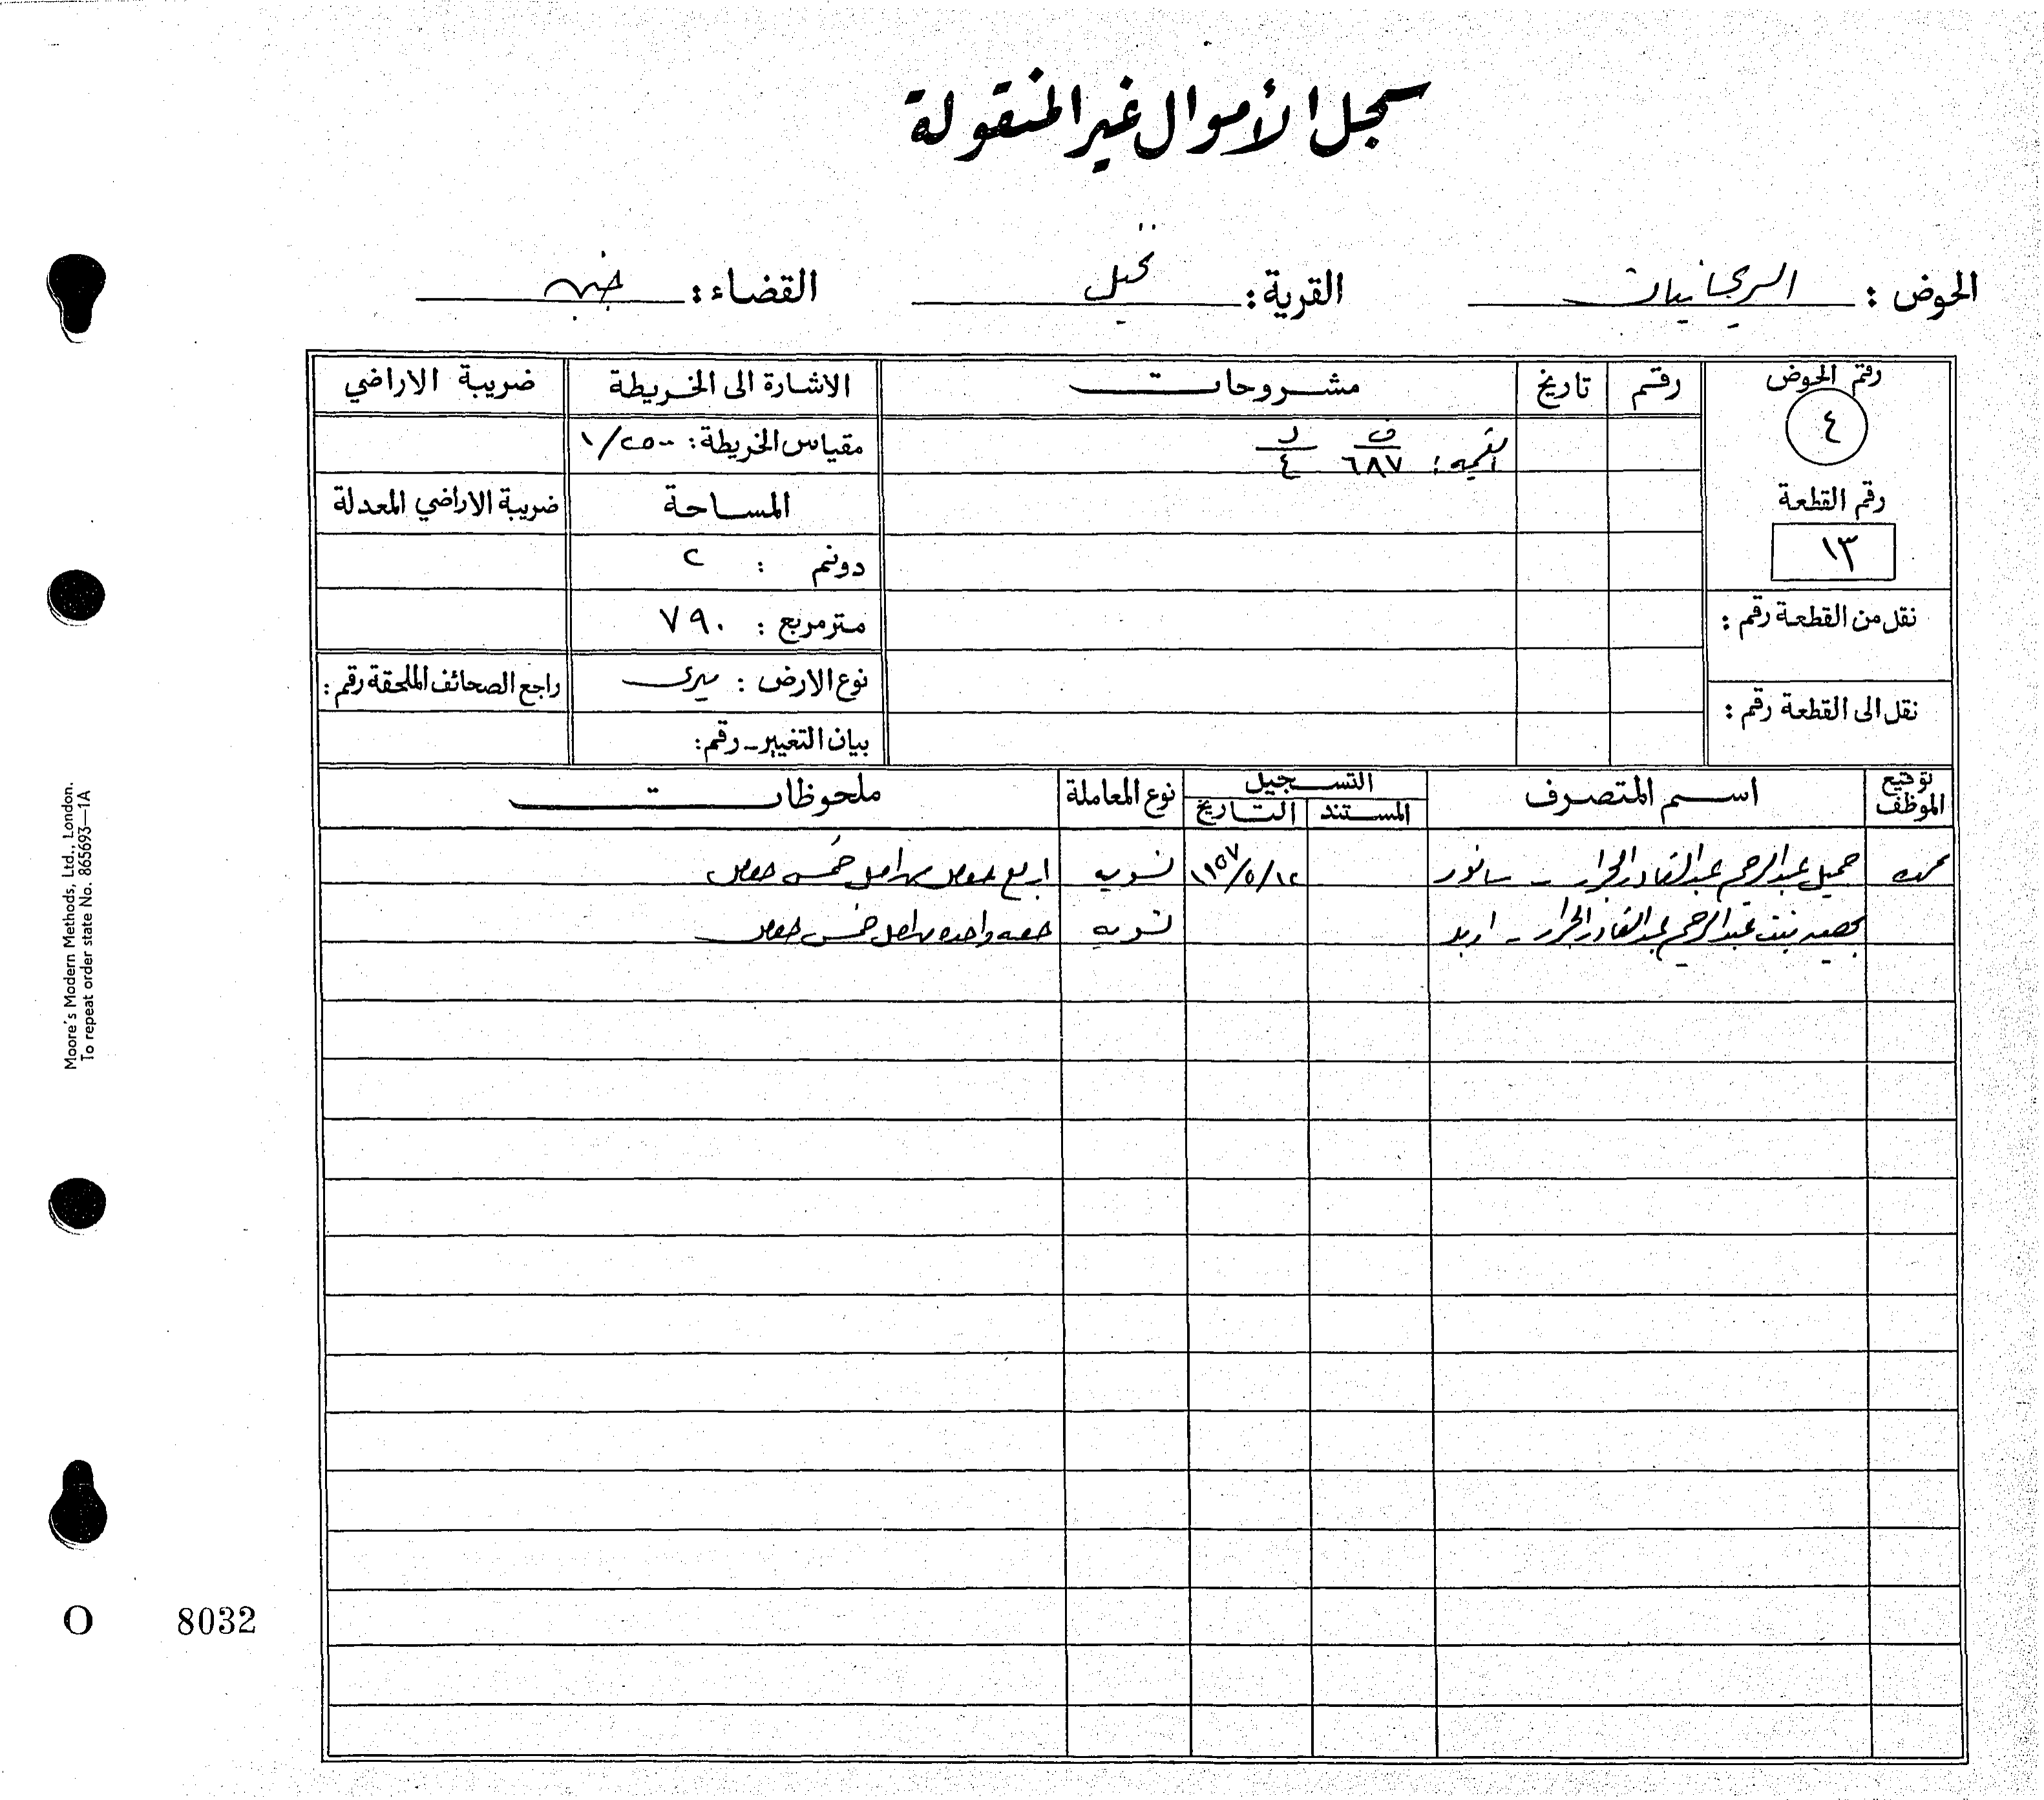 سجل الأموال غير المنقولة
الحوض : الريحانيات القرية : القضاء :
رقم الحوض رقم تاريخ مشروحات الاشارة الى الخريطة ضريبة الاراضي
٤ القيمه : ف ٦٨٧ د ٤ مقياس الخريطة : ١/٢٥٠٠
رقم القطعة المساحة ضريبة الاراضي المعدلة
١٣ دونم : ٢
نقل من القطعة رقم : متر مربع : ٧٩٠
نوع الارض : ميري راجع الصحائف الملحقة رقم :
نقل الى القطعة رقم : بيان التغيير - رقم :
توقيع الموظف اسم المتصرف التسجيل المستند التاريخ نوع المعاملة ملحوظات
جميل عبدالرحيم عبدالقادر الجرار - سانور ١٢/٥/ تسويه اربع حصص من اصل خمس حصص
بنت عبدالرحيم عبدالقادر الجرار - اربد تسويه حصه واحده من اصل خمس حصص
Moore's Modern Methods, Ltd., London.
To repeat order state No. 865693—1A
O 8032